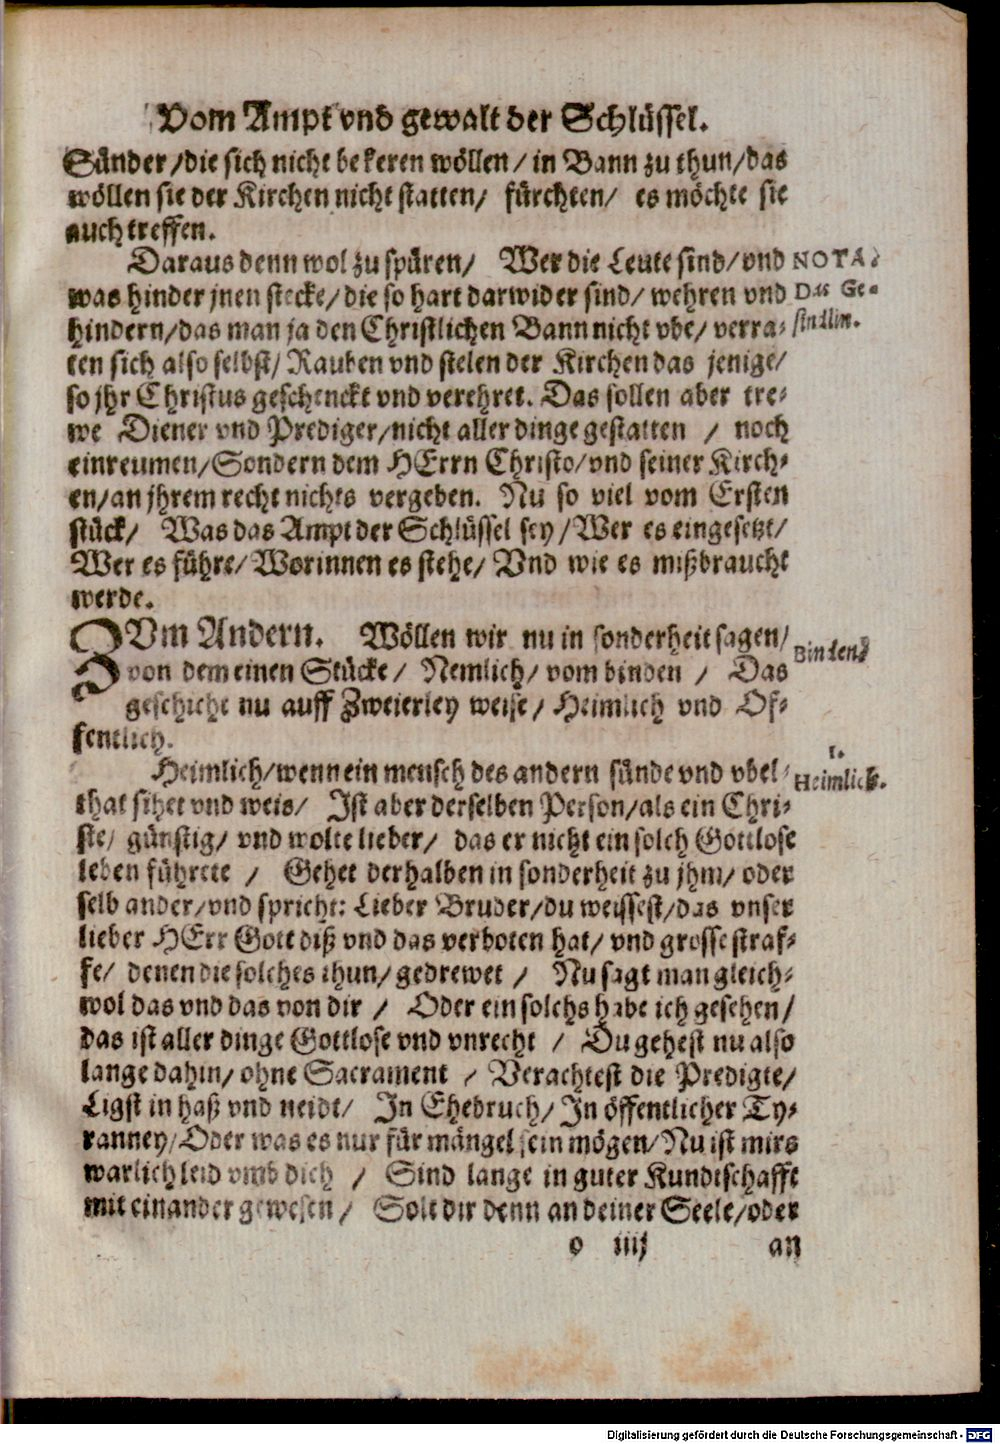 Vom Ampt vnd gewalt der Schlüssel.
Sünder/die sich nicht bekeren wöllen/ in Bann zu thun/das
wöllen sie der Kirchen nicht statten/ fürchten/ es möchte sie
auch treffen.
Daraus denn wol zu spüren/ Wer die Leute sind/vnd NOTA.
was hinder jnen stecke/die so hart darwider sind/ wehren vnd Das Ge-
hindern/das man ja den Christlichen Bann nicht vbe/ verra-
ten sich also selbst/ Rauben vnd stelen der Kirchen das jenige/
so jhr Christus geschenckt vnd verehret. Das sollen aber tre-
we Diener vnd Prediger/nicht aller dinge gestatten / noch
einreumen/Sondern dem HErrn Christo/vnd seiner Kirch-
en/an jhrem recht nichts vergeben. Nu so viel vom Ersten
stück/ Was das Ampt der Schlüssel sey/Wer es eingesetzt/
Wer es führe/ Worinnen es stehe/ Vnd wie es mißbraucht
werde.
ZVm Andern. Wöllen wir nu in sonderheit sagen/
von dem einen Stücke/ Nemlich/ vom binden / Das Binden.
geschicht nu auff Zweierley weise/ Heimlich vnd Of-
fentlich.
Heimlich/wenn ein mensch des andern sünde vnd vbel- 1. Heimlich.
that sihet vnd weis/ Ist aber derselben Person/als ein Chri-
ste/ günstig/ vnd wolte lieber/ das er nicht ein solch Gottlose
leben führete / Gehet derhalben in sonderheit zu jhm/ oder
selb ander/vnd spricht: Lieber Bruder/du weissest/das vnser
lieber HErr Gott diß vnd das verboten hat/ vnd grosse straf-
fe/ denen die solches thun/gedrewet / Nu sagt man gleich-
wol das vnd das von dir / Oder ein solchs habe ich gesehen/
das ist aller dinge Gottlose vnd vnrecht / Du gehest nu also
lange dahin/ ohne Sacrament / Verachtest die Predigte/
Ligst in haß vnd neidt/ In Ehebruch/In öffentlicher Ty-
ranney/Oder was es nur für mängel sein mögen/Nu ist mirs
warlich leid vmb dich / Sind lange in guter Kundtschafft
mit einander gewesen / Solt dir denn an deiner Seele/oder
o iiij an
Digitalisierung gefördert durch die Deutsche Forschungsgemeinschaft - DFG